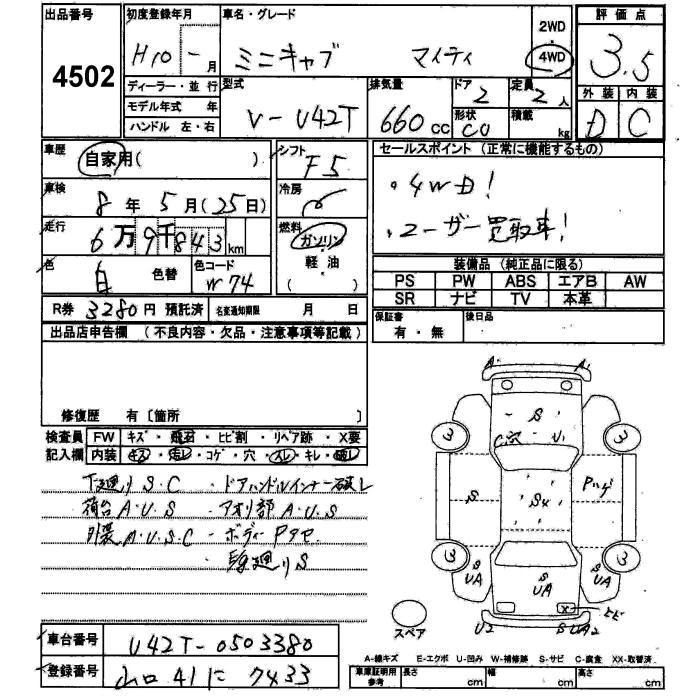 出品番号 4502
初度登録年月 H10 - 月
ディーラー・並 行
モデル年式 年
ハンドル 左・右
車名・グレード ミニキャブ マイティ
2WD
4WD
評価点 3.5
外装 D 内装 C
型式 V-U42T
排気量 660cc
ドア 2 定員 2人
形状 CU 積載 kg
車歴 自家用( )
車検 8年 5月(25日)
走行 6万9千843km
色 白 色替 色コード W74
シフト F5
冷房
燃料 ガソリン
軽 油
( )
セールスポイント (正常に機能するもの)
・4WD!
・ユーザー買取車!
装備品 (純正品に限る)
PS PW ABS エアB AW
SR ナビ TV 本革
R券 3280円 預託済 名変通知期限 月 日
保証書 有・無 後日品
出品店申告欄 (不良内容・欠品・注意事項等記載)
修復歴 有〔箇所
検査員 FW キズ・飛石・ヒビ割・リペア跡・X要
記入欄 内装 キズ・汚レ・コゲ・穴・スレ・キレ・破レ
下廻りS.C ・ドアハンドルインナー破レ
荷台A.U.S ・アオリ部A.U.S
外装A.U.S.C ・ボディーPタセ
A A
S
C穴 U
3 3
S S4 Pハゲ
3 3
S UA S UA S UA
X ヒビ
スペア U2 S UA2
A-線キズ E-エクボ U-凹み W-補修跡 S-サビ C-腐食 XX-取替済
車庫証明用参考 長さ cm 幅 cm 高さ cm
車台番号 U42T-0503380
登録番号 山口 41 に 7433